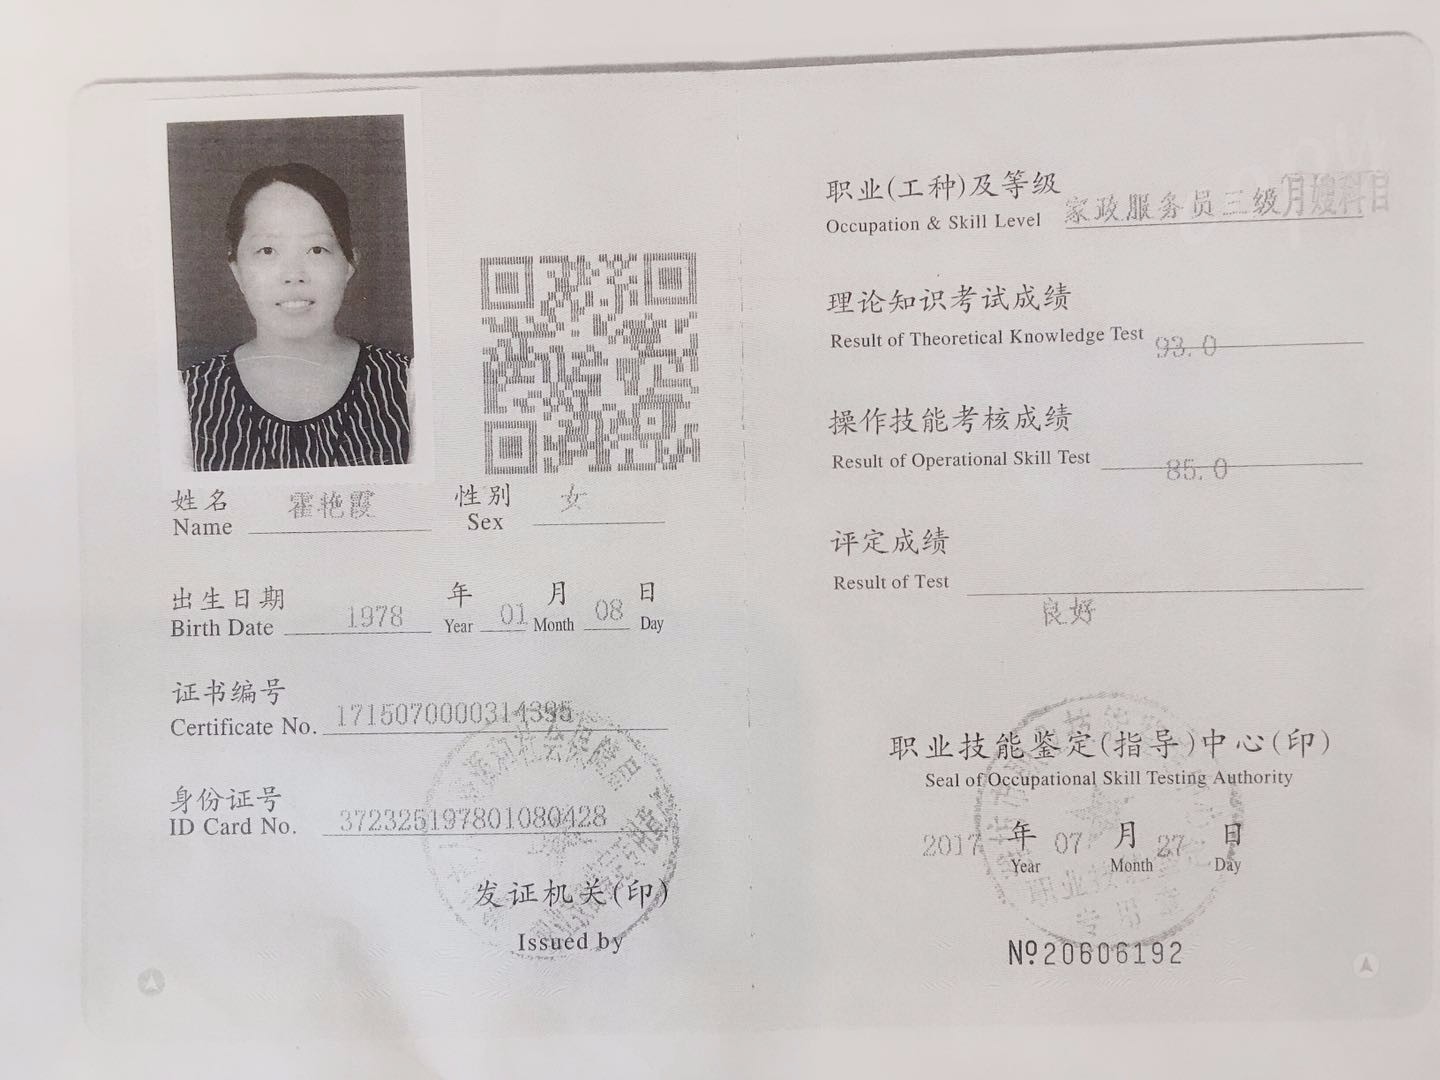 姓名 霍艳霞 性别 女
Name Sex
出生日期 1978 年 01 月 08 日
Birth Date Year Month Day
证书编号
Certificate No. 1715070000314395
身份证号
ID Card No. 372325197801080428
发证机关(印)
Issued by
职业(工种)及等级 家政服务员三级月嫂科目
Occupation & Skill Level
理论知识考试成绩
Result of Theoretical Knowledge Test 93.0
操作技能考核成绩
Result of Operational Skill Test 85.0
评定成绩
Result of Test
良好
职业技能鉴定(指导)中心(印)
Seal of Occupational Skill Testing Authority
2017 年 07 月 27 日
Year Month Day
专用章
№20606192